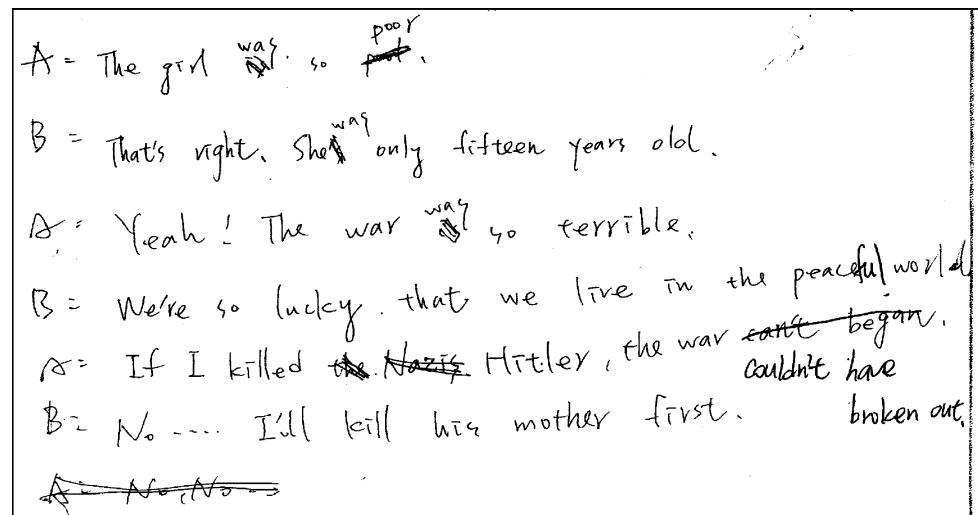 A= The girl was so poor.
B= That's right. She was only fifteen years old.
A= Yeah! The war was so terrible.
B= We're so lucky that we live in the peaceful world
A= If I killed the Nazis Hitler, the war can't began. couldn't have broken out.
B= No.... I'll kill his mother first.
A= No, No →